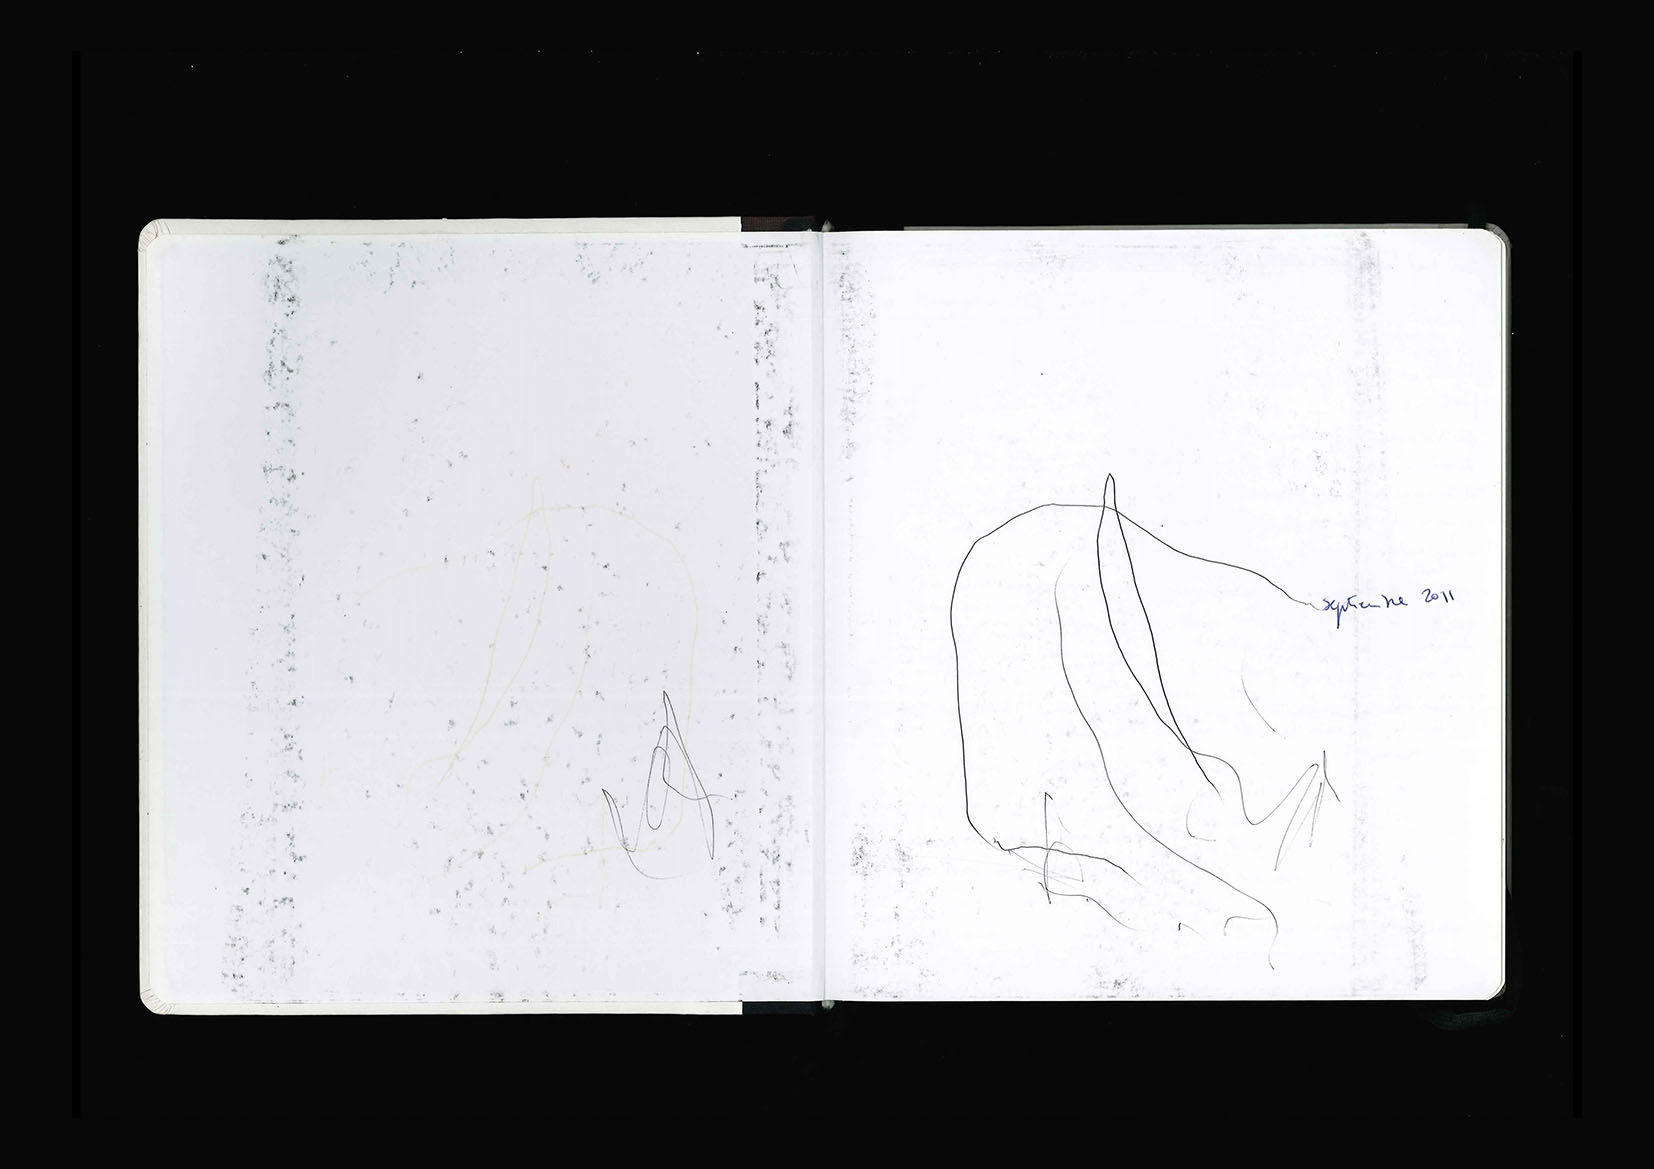 septiembre 2011